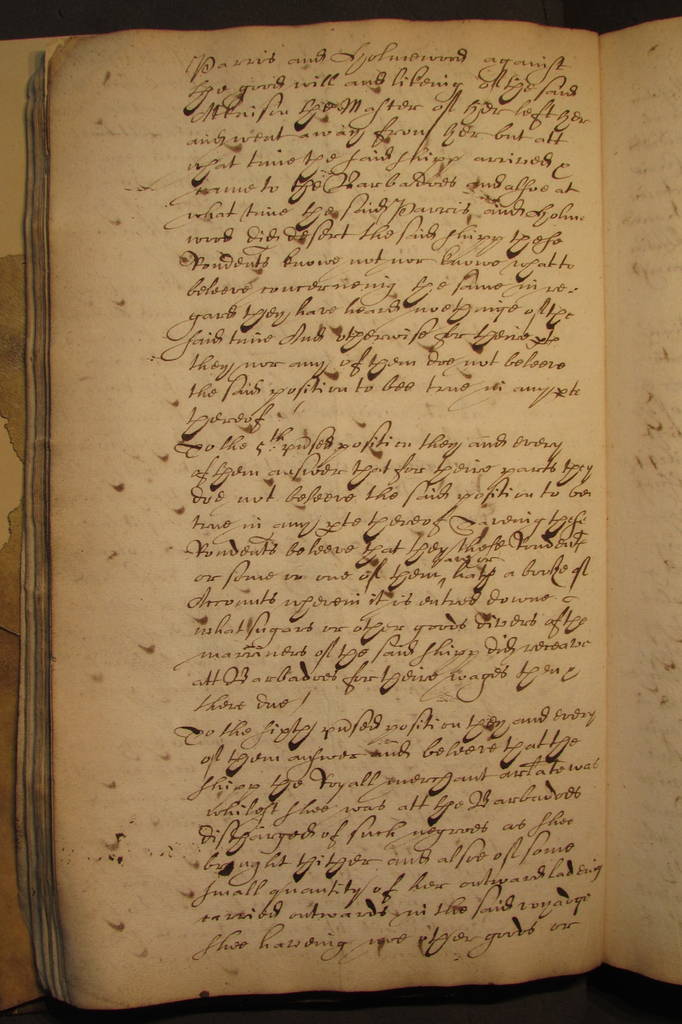 Parris and Holmewood against
the good will and likeing of the said
Atkinson the Master of her left her
and went away from her but att
what time the said shipp arrived &
came to the Barbadoes and alsoe at
what time the said Parris and Holme
wood did desert the said shipp these
Rondents knowe not nor knowe what to
beleeve concerneing the same in re-
gard they have heard noethinge of the
said time And otherwise for theire pte
they nor any of them doe not beleeve
the said position to bee true in any pte
thereof
To the 5th pnsed position they and every
of them answer that for theire parts they
doe not beleeve the said position to bee
true in any pte thereof Saveing these
Rondents beleeve that they these Rondents
or some or one of them have or hath a booke of
Accounts wherein it is entred downe
what sugars or other goods divers of the
marriners of the said shipp did receave
att Barbadoes for theire wages then
there due
To the sixth pnsed position they and every
of them answer and beleeve that the
shipp the Royall merchant arlate was
whilest shee was att the Barbadoes
discharged of such negroes as shee
brought thither and alsoe of some
small quantity of her outward ladeing
carried outwards in the said voyage
shee haveing noe other goods or